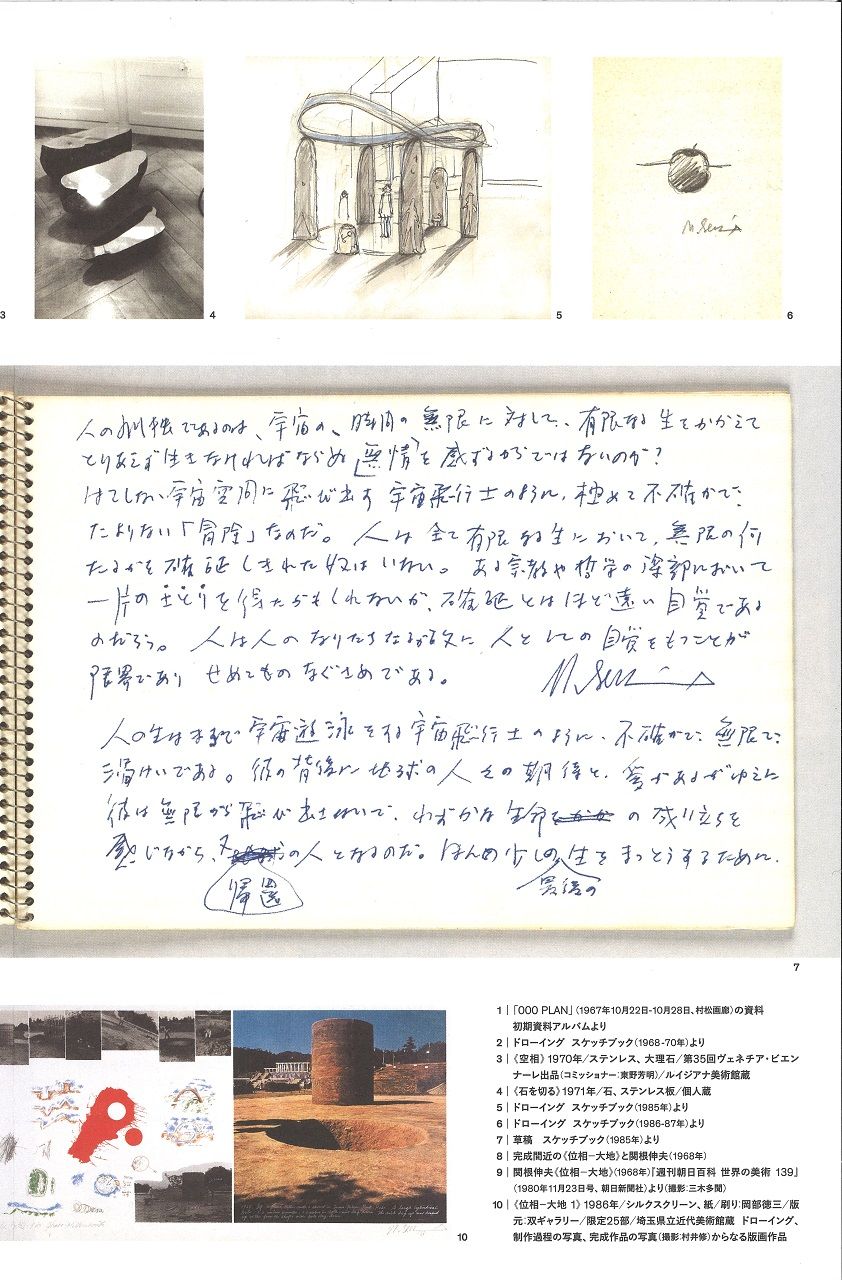 3
4
5
6
M. Seki
人の孤独であるのは、宇宙の、時間の無限に対して、有限なる生をかかえて
とりあえず生きなければならぬ「無情」を感ずるからではないのか?
はてしない宇宙空間に飛び出す宇宙飛行士のように、極めて不確かで、
たよりない「冒険」なのだ。人は全て有限なる生において、無限の何
たるかを確証しきれた奴はいない。ある宗教や哲学の深部において
一片のさとりを得たかもしれないが、確証とはほど遠い自覚である
のだろう。人は人のなりたちなるが故に人としての自覚をもつことが
限界であり せめてものなぐさめである。
人の生はまるで宇宙遊泳をする宇宙飛行士のように、不確かで、無限で、
である。彼の背後に地球の人々の期待と、愛があるがゆえに
彼は無限から飛び出さないで、わずかな生命の成り立ちを
感じながら、又の人となるのだ。ほんの少しの生をまっとうするために。
帰還
最後の
7
10
1|「OOO PLAN」(1967年10月22日-10月28日、村松画廊)の資料
初期資料アルバムより
2|ドローイング スケッチブック(1968-70年)より
3|《空相》1970年/ステンレス、大理石/第35回ヴェネチア・ビエン
ナーレ出品(コミッショナー:東野芳明)/ルイジアナ美術館蔵
4|《石を切る》1971年/石、ステンレス板/個人蔵
5|ドローイング スケッチブック(1985年)より
6|ドローイング スケッチブック(1986-87年)より
7|草稿 スケッチブック(1985年)より
8|完成間近の《位相−大地》と関根伸夫(1968年)
9|関根伸夫《位相−大地》(1968年)『週刊朝日百科 世界の美術 139』
(1980年11月23日号、朝日新聞社)より(撮影:三木多聞)
10|《位相−大地 1》1986年/シルクスクリーン、紙/刷り:岡部徳三/版
元:双ギャラリー/限定25部/埼玉県立近代美術館蔵 ドローイング、
制作過程の写真、完成作品の写真(撮影:村井修)からなる版画作品